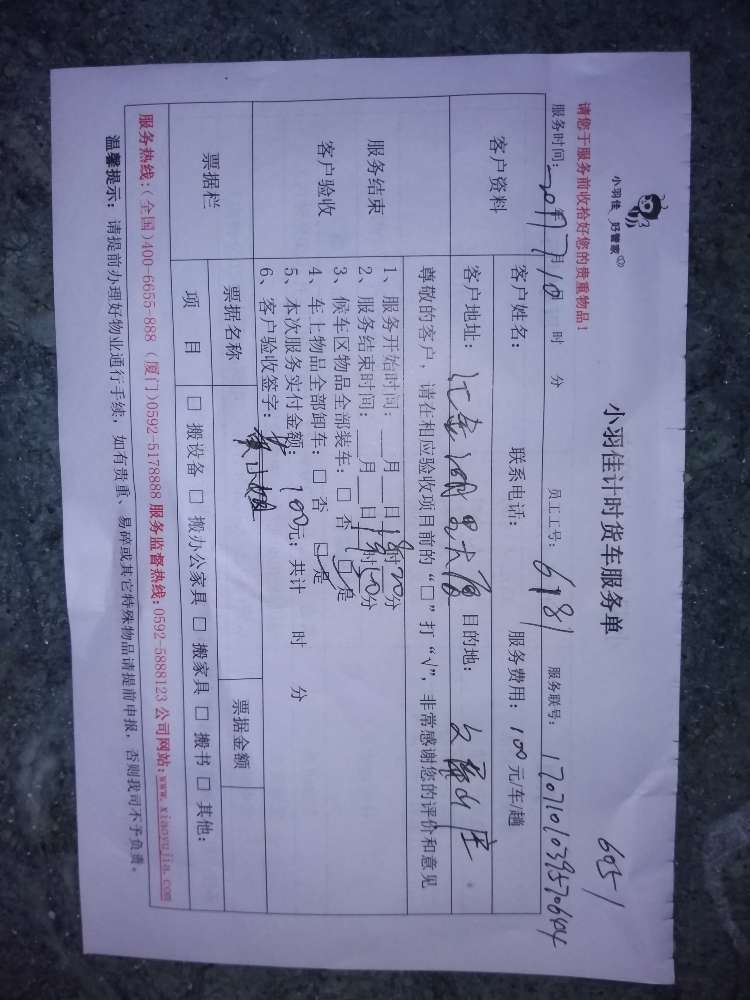 小羽佳 好管家
小羽佳计时货车服务单
6051
请您于服务前收拾好您的贵重物品！
服务时间：2017年7月10日 时 分 员工工号：6181 服务联号：
客户资料
客户姓名： 联系电话： 服务费用：100元/车/趟
客户地址： 目的地：
服务结束
客户验收
尊敬的客户，请在相应验收项目前的“□”打“√”，非常感谢您的评价和意见
1、服务开始时间：＿月＿日18时20分
2、服务结束时间：＿月＿日19时50分
3、候车区物品全部装车：□ 否 □ 是
4、车上物品全部卸车：□ 否 □ 是
5、本次服务实付金额：100元；共计 时 分
6、客户验收签字：
票据栏
票据名称 票据金额
项 目 □ 搬设备 □ 搬办公家具 □ 搬家具 □ 搬书 □ 其他：
服务热线：(全国)400-6655-888 (厦门)0592-5178888 服务监督热线：0592-5888123 公司网站：www.xiaoyujia.com
温馨提示：请提前办理好物业通行手续，如有贵重、易碎或其它特殊物品请提前申报，否则我司不予负责。